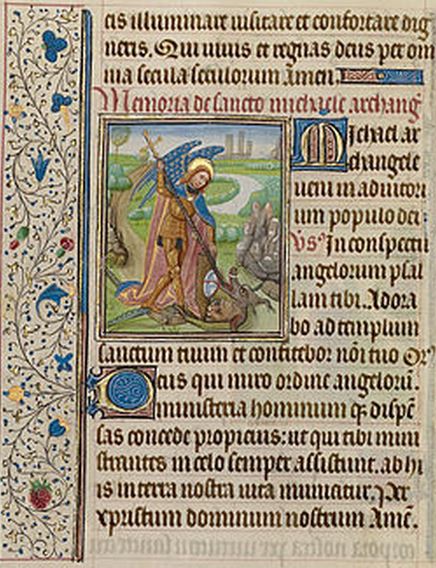 cis illuminare visitare et confortare dig
neris. Qui vivis et regnas deus per om
nia secula seculorum amen.
Memoria de sancto michaele archang
Michael ar
changele
veni in adiutori
um populo dei.
Vs In conspectu
angelorum psal
lam tibi. Adora
bo ad templum
sanctum tuum et confitebor nõi tuo Or
Deus qui miro ordine angelorũ.
ministeria hominum qz dispẽ
sas concede propicius: ut qui tibi mini
strantes in celo semper assistunt. ab hi
is in terra nostra vita muniatur. Per
xpristum dominum nostrum Amẽ.